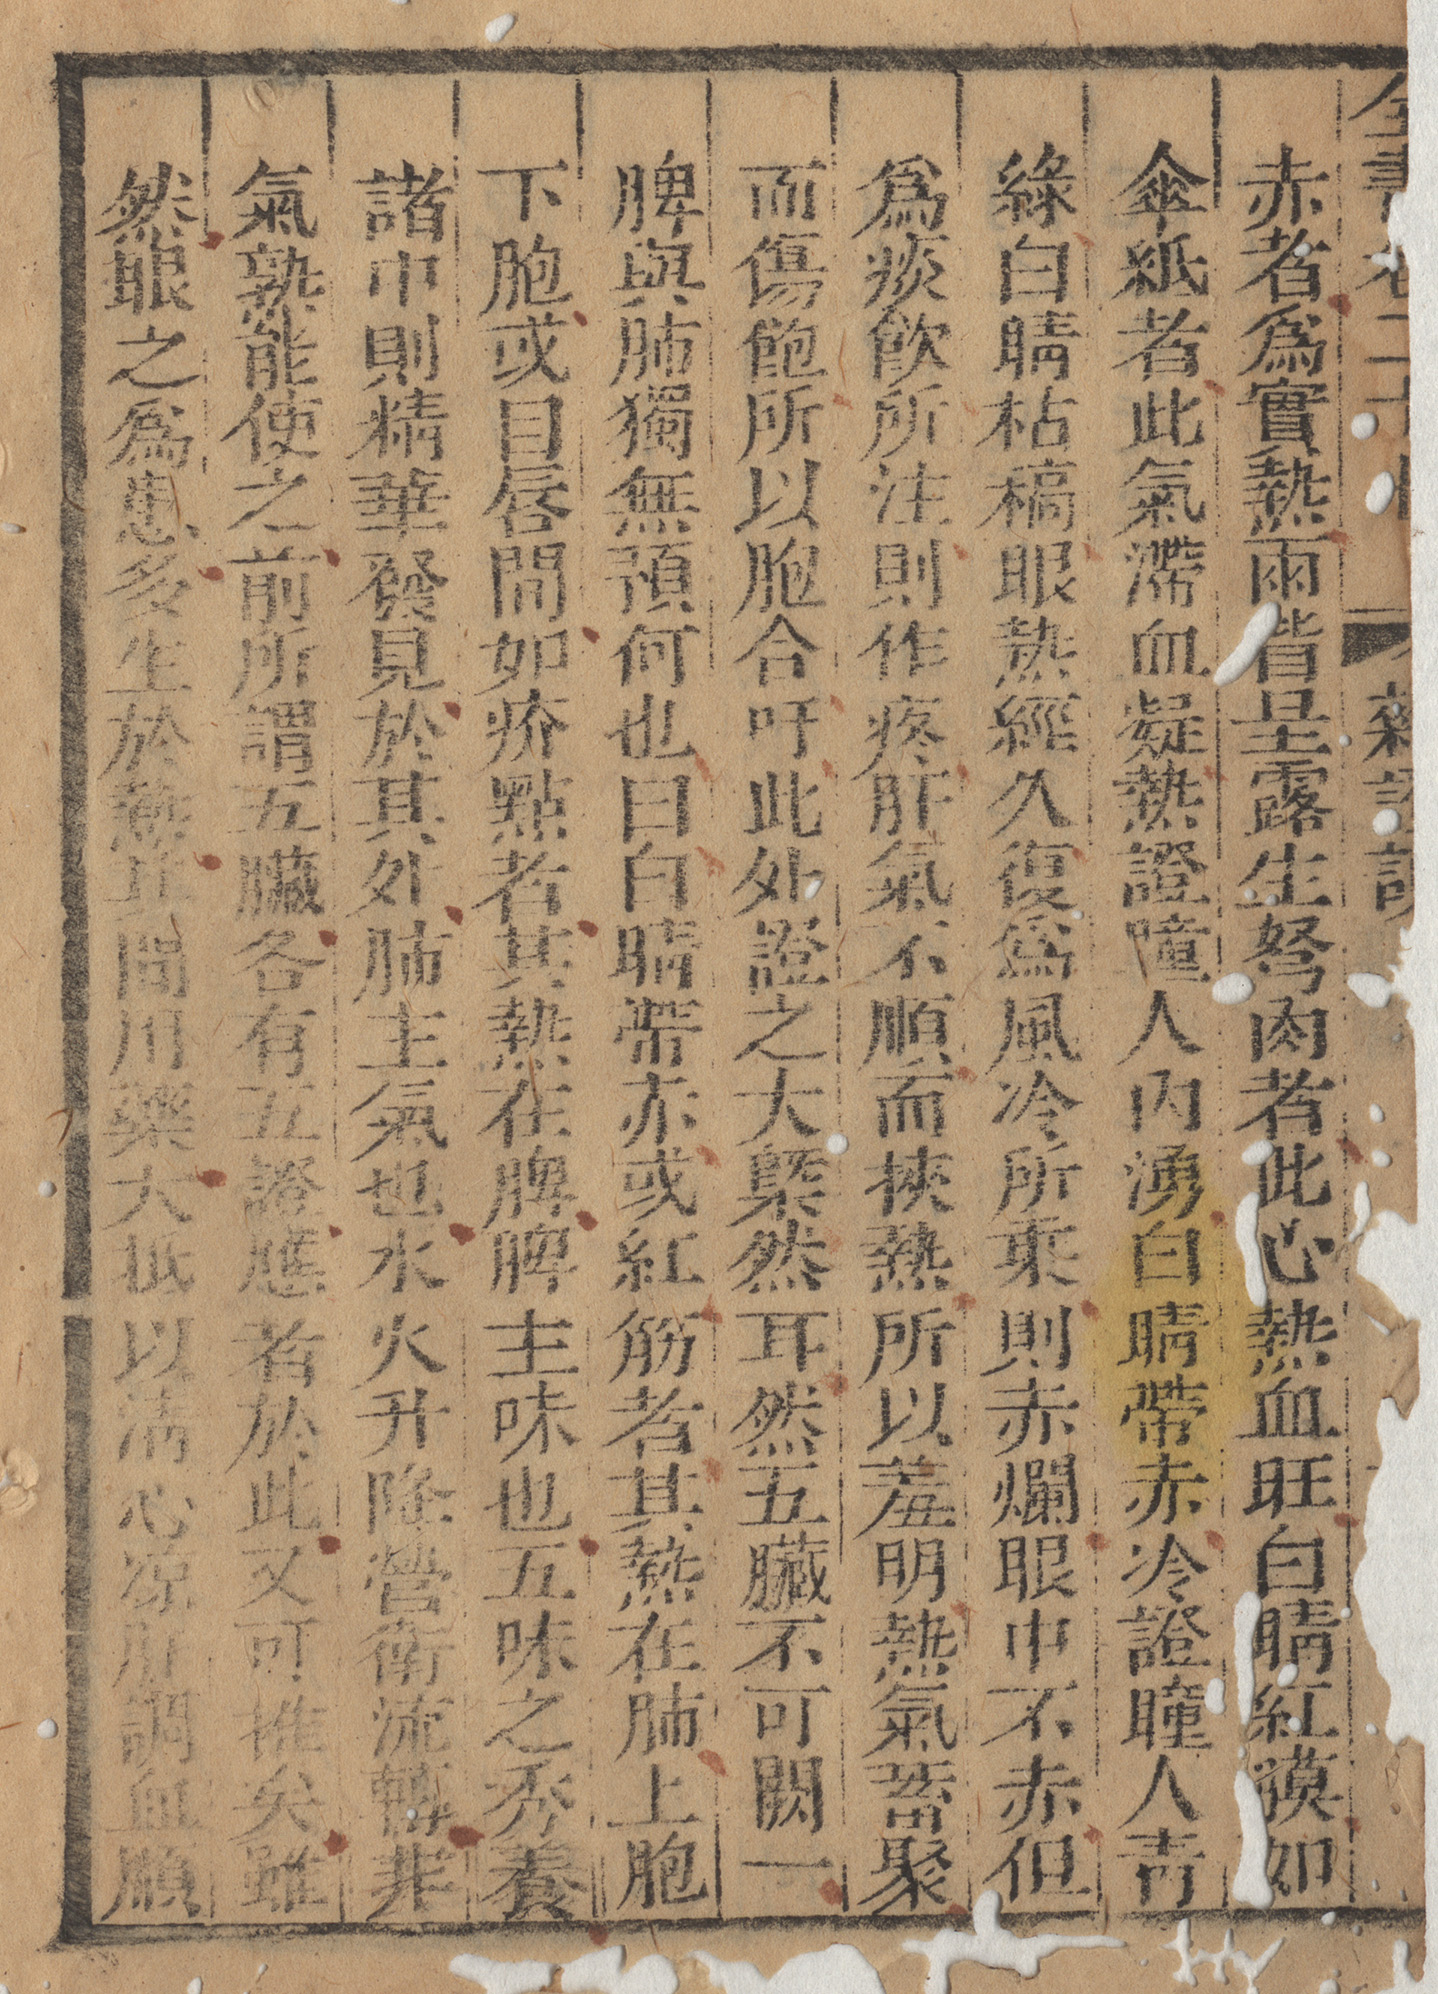 全書卷二十
雜證
赤者爲實熱兩眥呈露生弩肉者此心熱血旺白睛紅膜如
傘紙者此氣滯血凝熱證瞳人內湧白睛帶赤冷證瞳人靑
綠白睛枯稿眼熱經久復爲風冷所乘則赤爛眼中不赤但
爲痰飮所注則作疼肝氣不順而挾熱所以羞明熱氣蓄聚
而傷飽所以胞合吁此外證之大槩然耳然五臟不可闕一
脾與肺獨無預何也曰白睛帶赤或紅筋者其熱在肺上胞
下胞或目唇間如疥點者其熱在脾脾主味也五味之秀養
諸中則精華發見於其外肺主氣也水火升降營衛流轉非
氣孰能使之前所謂五臟各有五證應者於此又可推矣雖
然眼之爲患多生於熱其間用藥大抵以淸心凉肝調血順